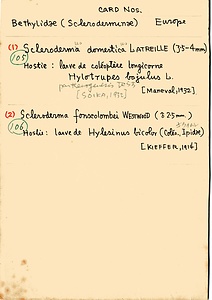 CARD NOS.
Bethylidae (Scleroderminae) Europe
(1) Scleroderma domestica LATREILLE (3.5-4mm)
105
Hostie : larve de coléoptère longicorne
Hylotrupes bajulus L.
[Maneval, 1932]
[SOIKA, 1932]
(2) Scleroderma fonscolombei WESTWOOD (3.25mm)
106
Hostie : larve de Hylesinus bicolor (Coleo. Ipidae)
[KIEFFER, 1916]